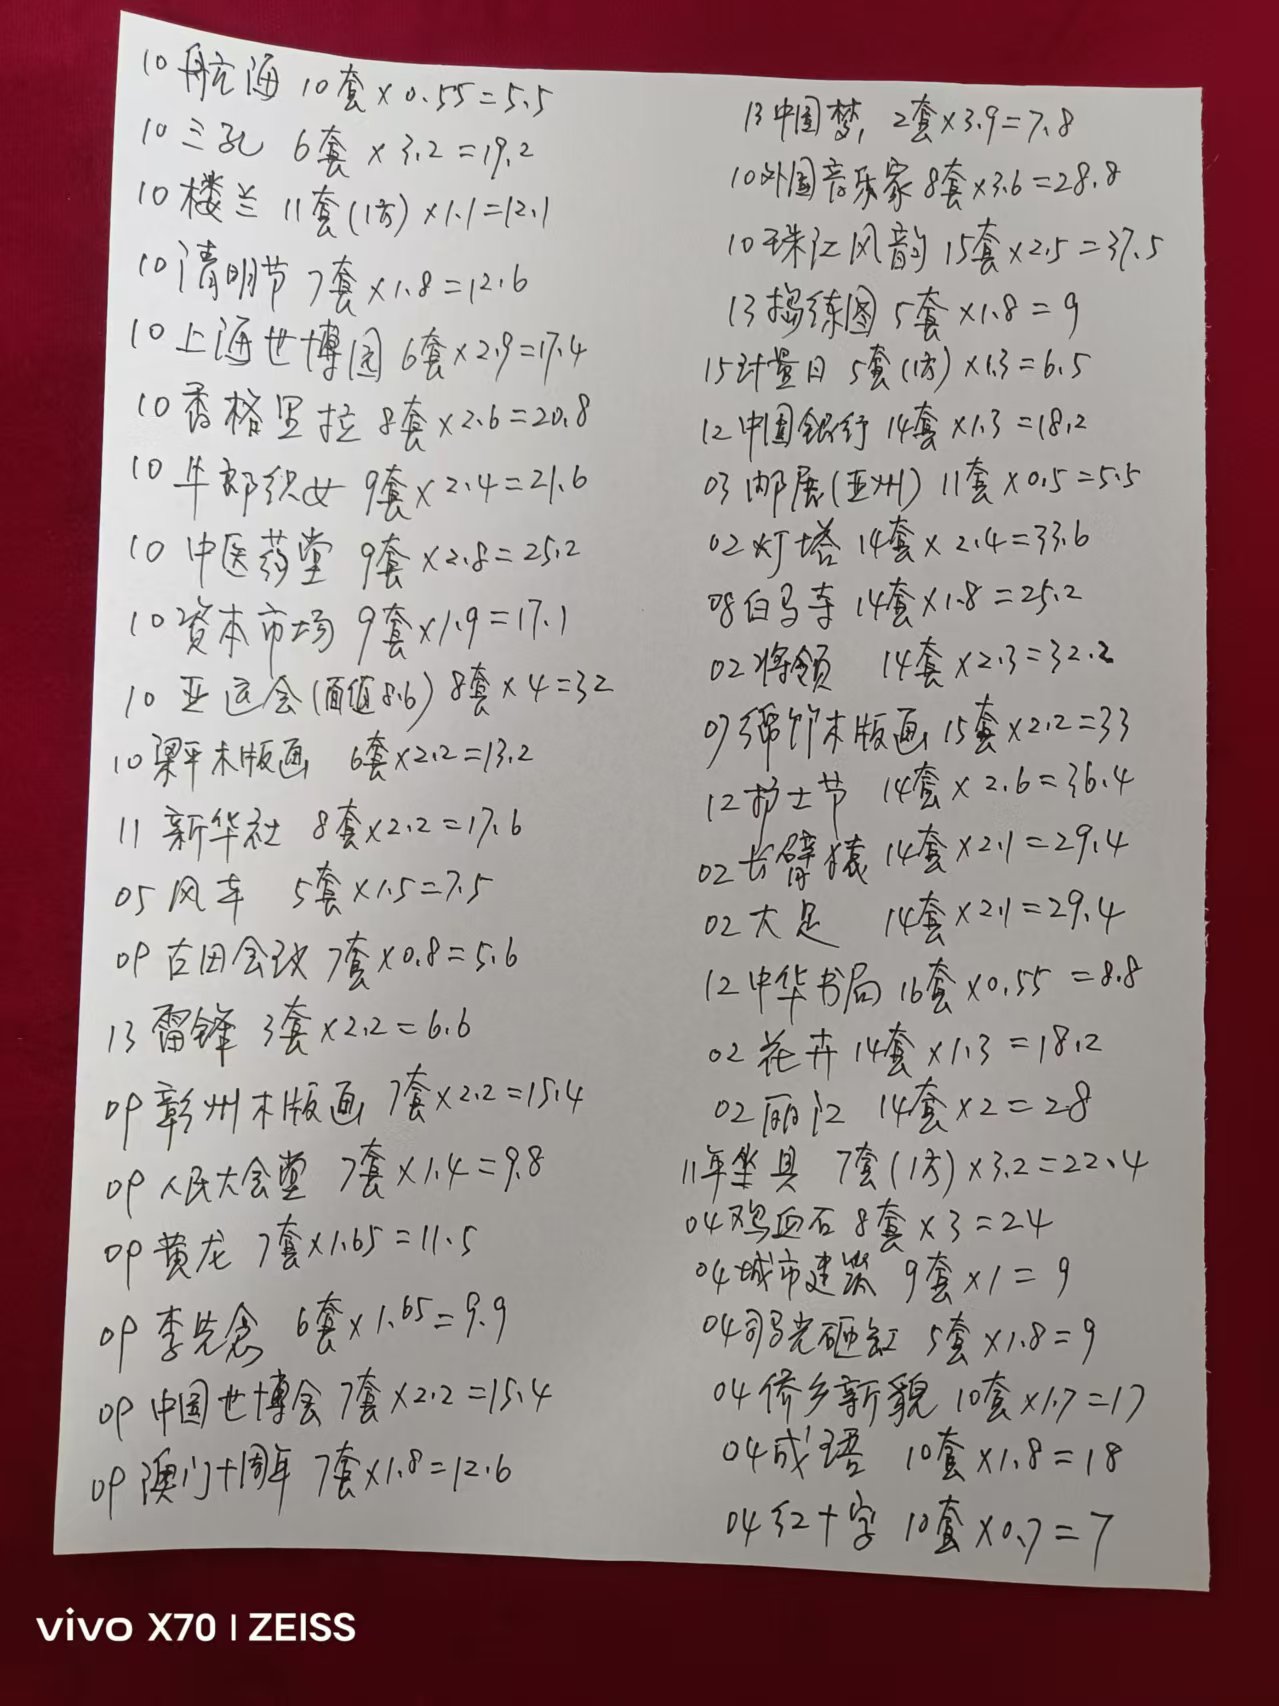 10航海 10套×0.55=5.5
10三孔 6套×3.2=19.2
10楼兰 11套(1方)×1.1=12.1
10清明节 7套×1.8=12.6
10上海世博园 6套×2.9=17.4
10香格里拉 8套×2.6=20.8
10牛郎织女 9套×2.4=21.6
10中医药堂 9套×2.8=25.2
10资本市场 9套×1.9=17.1
10亚运会(面值8.6) 8套×4=32
10梁平木版画 6套×2.2=13.2
11新华社 8套×2.2=17.6
05风车 5套×1.5=7.5
09古田会议 7套×0.8=5.6
13雷锋 3套×2.2=6.6
09彰州木版画 7套×2.2=15.4
09人民大会堂 7套×1.4=9.8
09黄龙 7套×1.65=11.5
09李先念 6套×1.65=9.9
09中国世博会 7套×2.2=15.4
09澳门十周年 7套×1.8=12.6
13中国梦, 2套×3.9=7.8
10外国音乐家 8套×3.6=28.8
10珠江风韵 15套×2.5=37.5
13捣练图 5套×1.8=9
15计量日 5套(1方)×1.3=6.5
12中国银行 14套×1.3=18.2
03邮展(亚州) 11套×0.5=5.5
02灯塔 14套×2.4=33.6
08白马寺 14套×1.8=25.2
02将领 14套×2.3=32.2
07绵竹木版画 15套×2.2=33
12护士节 14套×2.6=36.4
02长臂猿 14套×2.1=29.4
02大足 14套×2.1=29.4
12中华书局 16套×0.55=8.8
02花卉 14套×1.3=18.2
02丽江 14套×2=28
11年坐具 7套(1方)×3.2=22.4
04鸡血石 8套×3=24
04城市建筑 9套×1=9
04司马光砸缸 5套×1.8=9
04侨乡新貌 10套×1.7=17
04成语 10套×1.8=18
04红十字 10套×0.7=7
vivo X70 | ZEISS